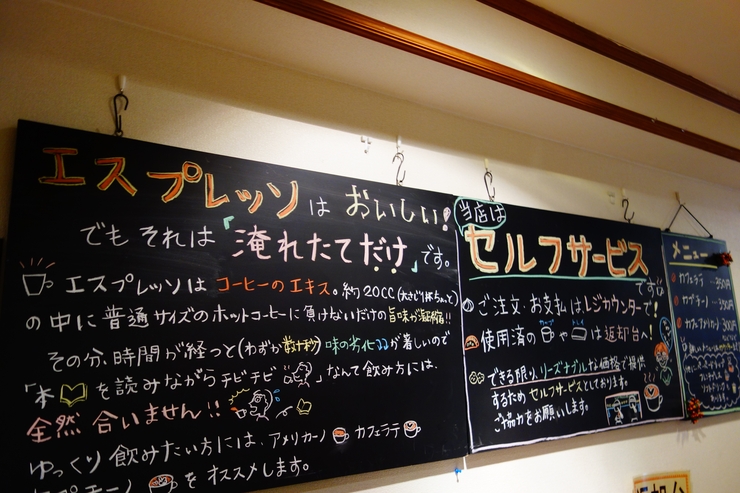 エスプレッソは おいしい!
でも それは「淹れたてだけ」です。
エスプレッソは コーヒーのエキス。約20cc
の中に普通サイズのホットコーヒーに負けないだけの旨味が凝縮!!
その分、時間が経つと(わずか数十秒)味の劣化が著しいので
「本を読みながらチビチビ」なんて飲み方には、
全然 合いません!!
ゆっくり飲みたい方には、アメリカーノ カフェラテ
をオススメします。
当店は
セルフサービス
です
ご注文・お支払はレジカウンターで!
使用済の カップ や トレイ は 返却台へ!
できる限り、リーズナブルな価格で提供
するため セルフサービスとしております。
ご協力をお願いします。
メニュー
カフェラテ